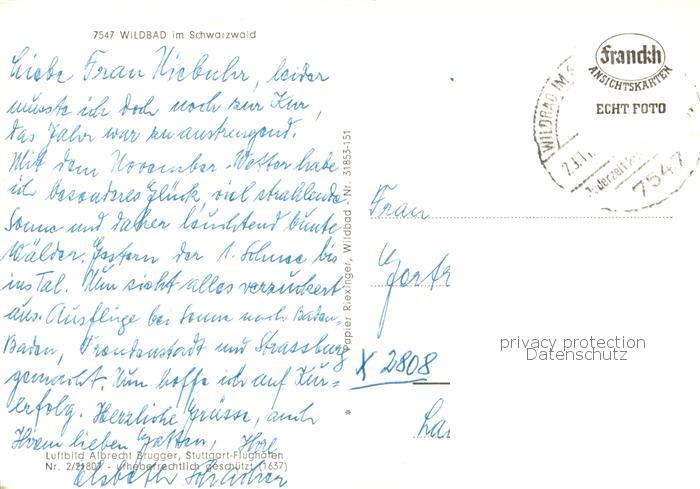 7547 WILDBAD im Schwarzwald
Liebe Frau Niebuhr, leider
musste ich doch noch zur Kur,
das Jahr war zu anstrengend.
Mit dem November-Wetter habe
ich besonderes Glück, viel strahlende
Sonne und daher leuchtend bunte
Wälder. Gestern der 1. Schnee bis
ins Tal. Nun sieht alles verzuckert
aus. Ausflüge bei Sonne nach Baden-
Baden, Freudenstadt und Strassburg
gemacht. Nun hoffe ich auf Kur-
erfolg. Herzliche Grüsse, auch
Ihrem lieben Gatten, Ihre
Elsbeth
Luftbild Albrecht Brugger, Stuttgart-Flughafen
Nr. 2/21807 - urheberrechtlich geschützt (1637)
Papier Riexinger, Wildbad - Nr. 31853-151
*
Franckh
ANSICHTSKARTEN
ECHT FOTO
WILDBAD IM S
23.1
7547
Frau
Gertr
X 2808
La
privacy protection
Datenschutz